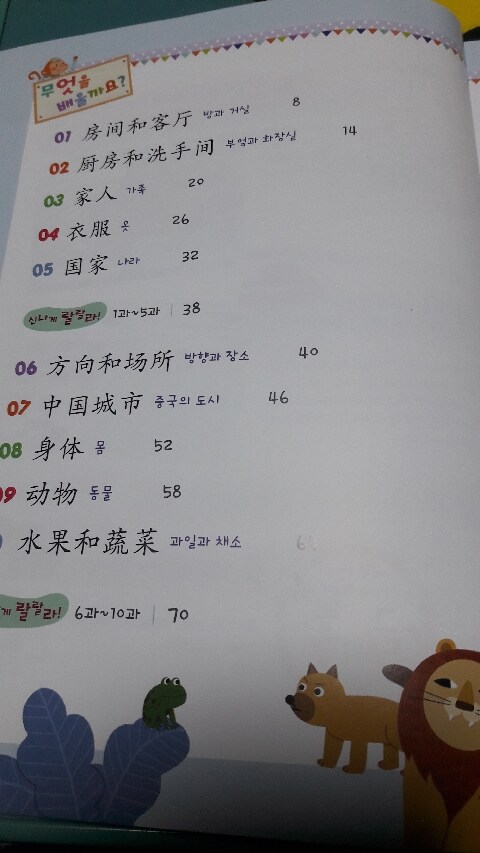 무엇을
배울까요?
01 房间和客厅 방과 거실 8
02 厨房和洗手间 부엌과 화장실 14
03 家人 가족 20
04 衣服 옷 26
05 国家 나라 32
신나게 랄랄라! 1과~5과 | 38
06 方向和场所 방향과 장소 40
07 中国城市 중국의 도시 46
08 身体 몸 52
09 动物 동물 58
水果和蔬菜 과일과 채소
게 랄랄라! 6과~10과 | 70